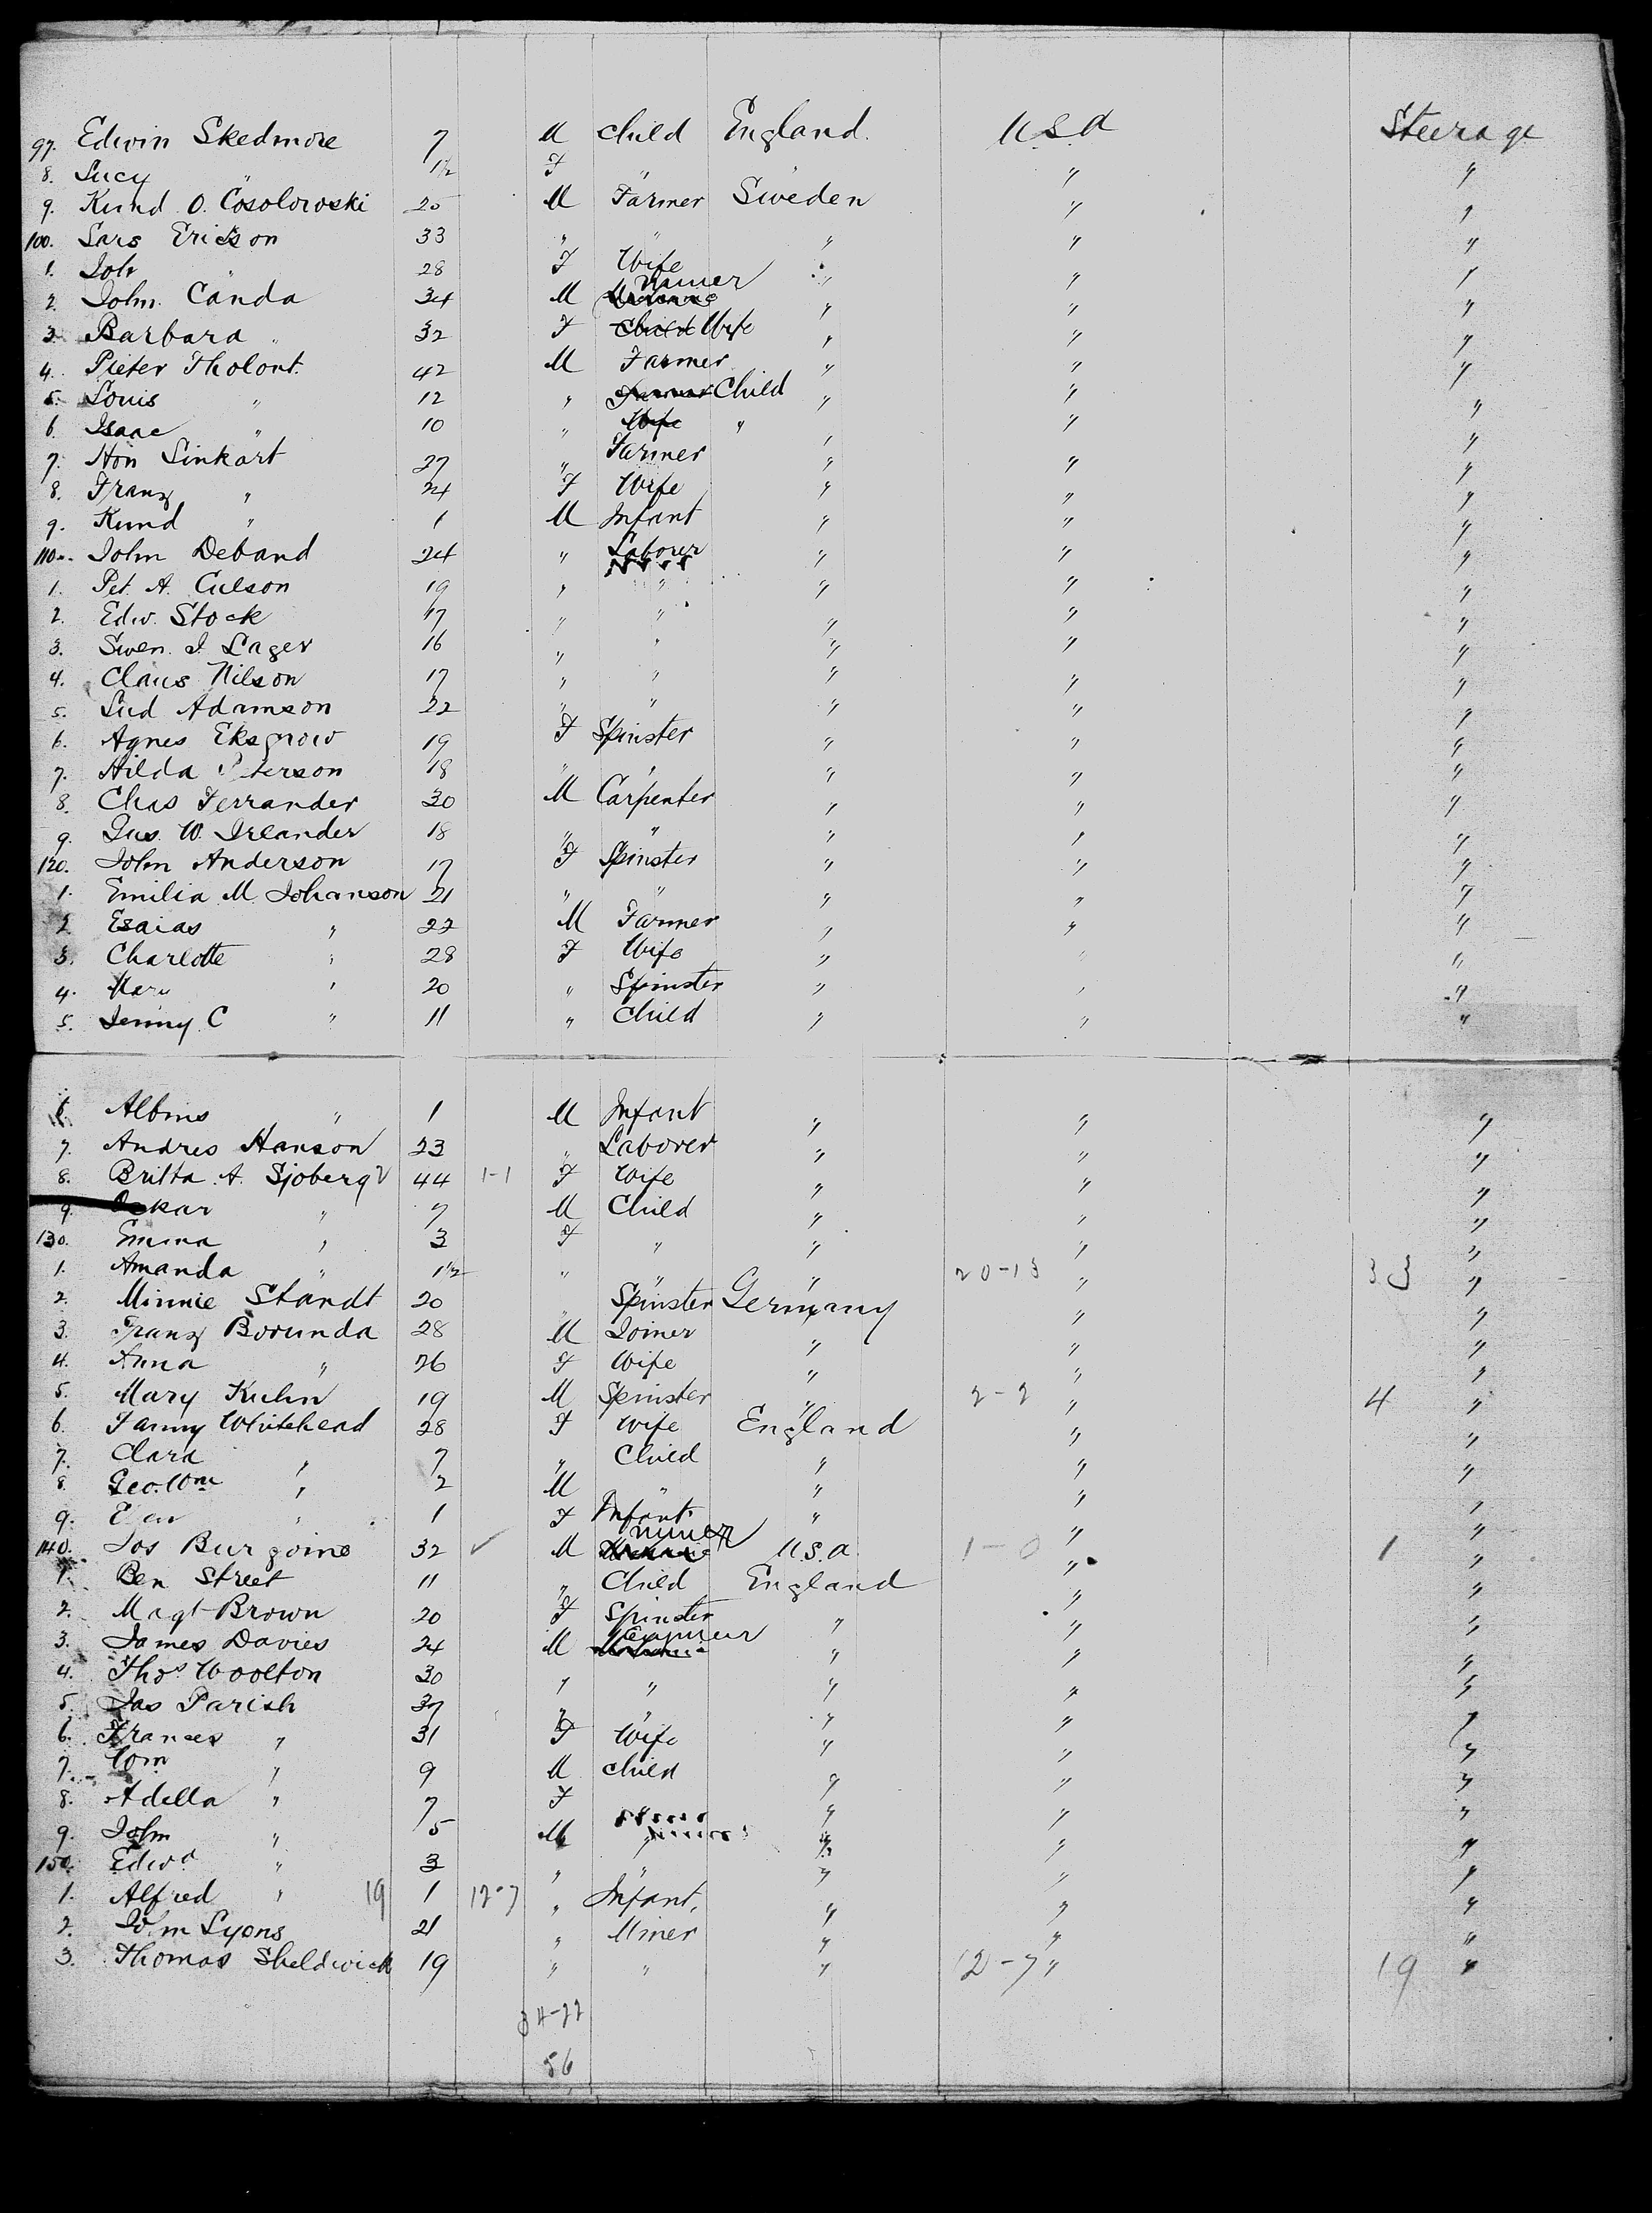 97. Edwin Skedmore 7 M Child England. U.S.A Steerage
8. Lucy " 1 1/2 F " " " "
9. Kund O. Cosolowski 25 M Farmer Sweden " "
100. Lars Erickson 33 " " " " "
1. Joh " 28 F Wife " " "
2. John Canda 34 M Miner " " "
3. Barbara " 32 F Child Wife " " "
4. Pieter Tholont. 42 M Farmer " " "
5. Louis " 12 " Farmer Child " " "
6. Isaac " 10 " Wife " " "
7. Hon Linkart 27 " Farmer " " "
8. Franz " 24 F Wife " " "
9. Kund " 1 M Infant " " "
110. John Deband 24 " Laborer " " "
1. Pet. A. Culson 19 " " " " "
2. Edw. Stock 17 " " " " "
3. Swen. J. Lager 16 " " " " "
4. Claus Nilson 17 " " " " "
5. Lud Adamson 22 " " " " "
6. Agnes 19 F Spinster " " "
7. Hilda Peterson 18 " " " " "
8. Chas Ferrander 30 M Carpenter " " "
9. Gus. W. Ireander 18 " " " " "
120. John Anderson 17 F Spinster " " "
1. Emilia M. Johanson 21 " " " " "
2. Esaias " 22 M Farmer " " "
3. Charlotte " 28 F Wife " " "
4. Mari " 20 " Spinster " " "
5. Jenny C " 11 " Child " " "
6. Albins " 1 M Infant " " "
7. Andres Hanson 23 " Laborer " " "
8. Britta. A. Sjoberg 44 1-1 F Wife " " "
9. Oskar " 7 M Child " " "
130. Emma " 3 F " " " "
1. Amanda " 1 1/2 " " " 20-13 " 33 "
2. Minnie Standt 20 " Spinster Germany " "
3. Franz Borunda 28 M Joiner " " "
4. Anna " 26 F Wife " " "
5. Mary Kuhn 19 M Spinster " 2-2 " 4 "
6. Fanny Whitehead 28 F Wife England " "
7. Clara " 7 " Child " " "
8. Geo. Wm " 2 M " " " "
9. " 1 F Infant " " "
140. Jos Burgoine 32 ✓ M Miner U.S.A. 1-0 " 1 "
1. Ben Street 11 " Child England " "
2. Magt Brown 20 F Spinster " " "
3. James Davies 24 M " " "
4. Thos. Woolton 30 " " " " "
5. Jas Parish 37 " " " " "
6. Frances " 31 F Wife " " "
7. Wm " 9 M Child " " "
8. Adella " 7 F " " "
9. John " 5 M " " " "
150. Edwd " 3 " " " " "
1. Alfred " 19 1 12-7 " Infant. " " "
2. Wm Lyons 21 " Miner " " "
3. Thomas Sheldwick 19 " " " 12-7 " 19 "
34-22
56